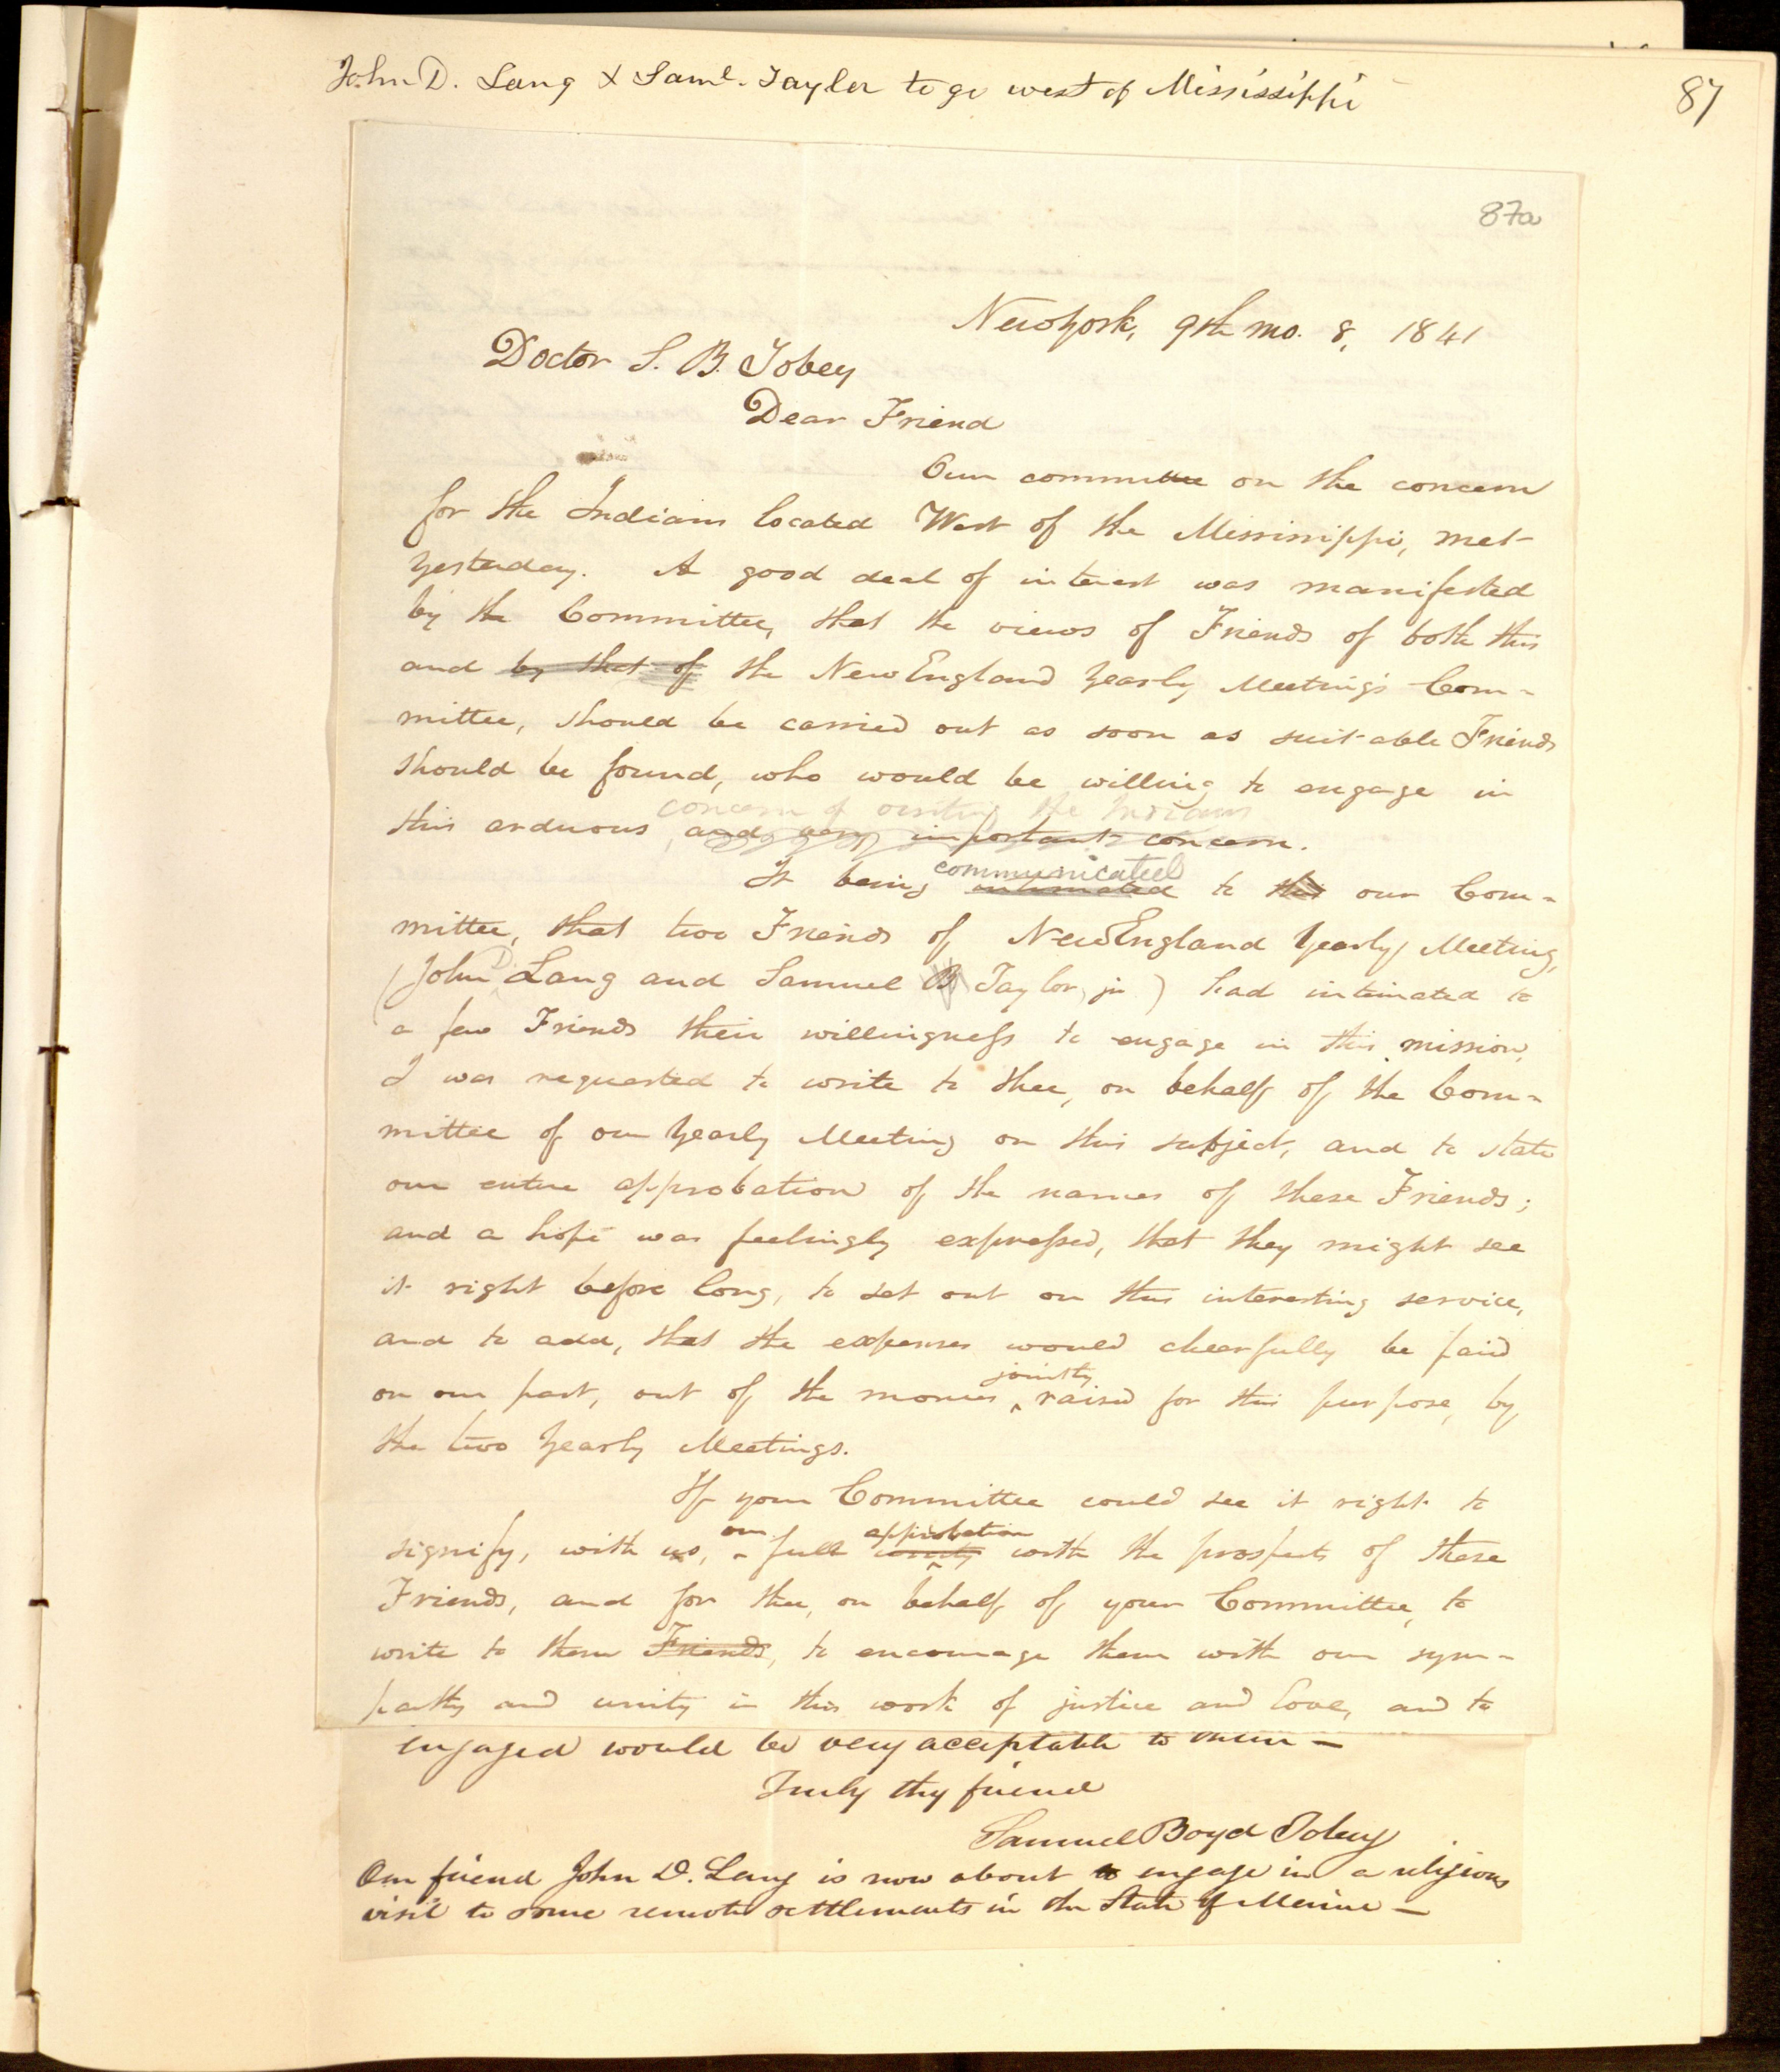 John D. Lang & Saml. Taylor to go west of Mississippi
87
87a
New York, 9th mo. 8, 1841
Doctor S. B. Tobey
Dear Friend
Our committee on the concern
for the Indians located West of the Mississippi, met
yesterday. A good deal of interest was manifested
by the Committee, that the views of Friends of both this
and by that of the New England Yearly Meeting's Com-
mittee, should be carried out as soon as suitable Friends
should be found, who would be willing to engage in
concern of visiting the Indians
this arduous and very important concern.
communicated
It being intimated to this our Com-
mittee, that two Friends of New England Yearly Meeting,
(John D. Lang and Samuel B Taylor, jr) had intimated to
a few Friends their willingness to engage in this mission,
I was requested to write to thee, on behalf of the Com-
mittee of our Yearly Meeting on this subject, and to state
our entire approbation of the names of these Friends;
and a hope was feelingly expressed, that they might see
it right before long, to set out on this interesting service,
and to add, that the expenses would cheerfully be paid
jointly
on our part, out of the monies ‸ raised for this purpose, by
the two Yearly Meetings.
If your Committee could see it right to
our approbation
signify, with us, a full unity with the prospects of these
Friends, and for thee, on behalf of your Committee, to
write to them Friends, to encourage them with our sym-
pathy and unity in this work of justice and love, and to
engaged would be very acceptable to them —
Truly thy friend
Samuel Boyd Tobey
Our friend John D. Lang is now about to engage in a religious
visit to some remote settlements in the State of Maine —